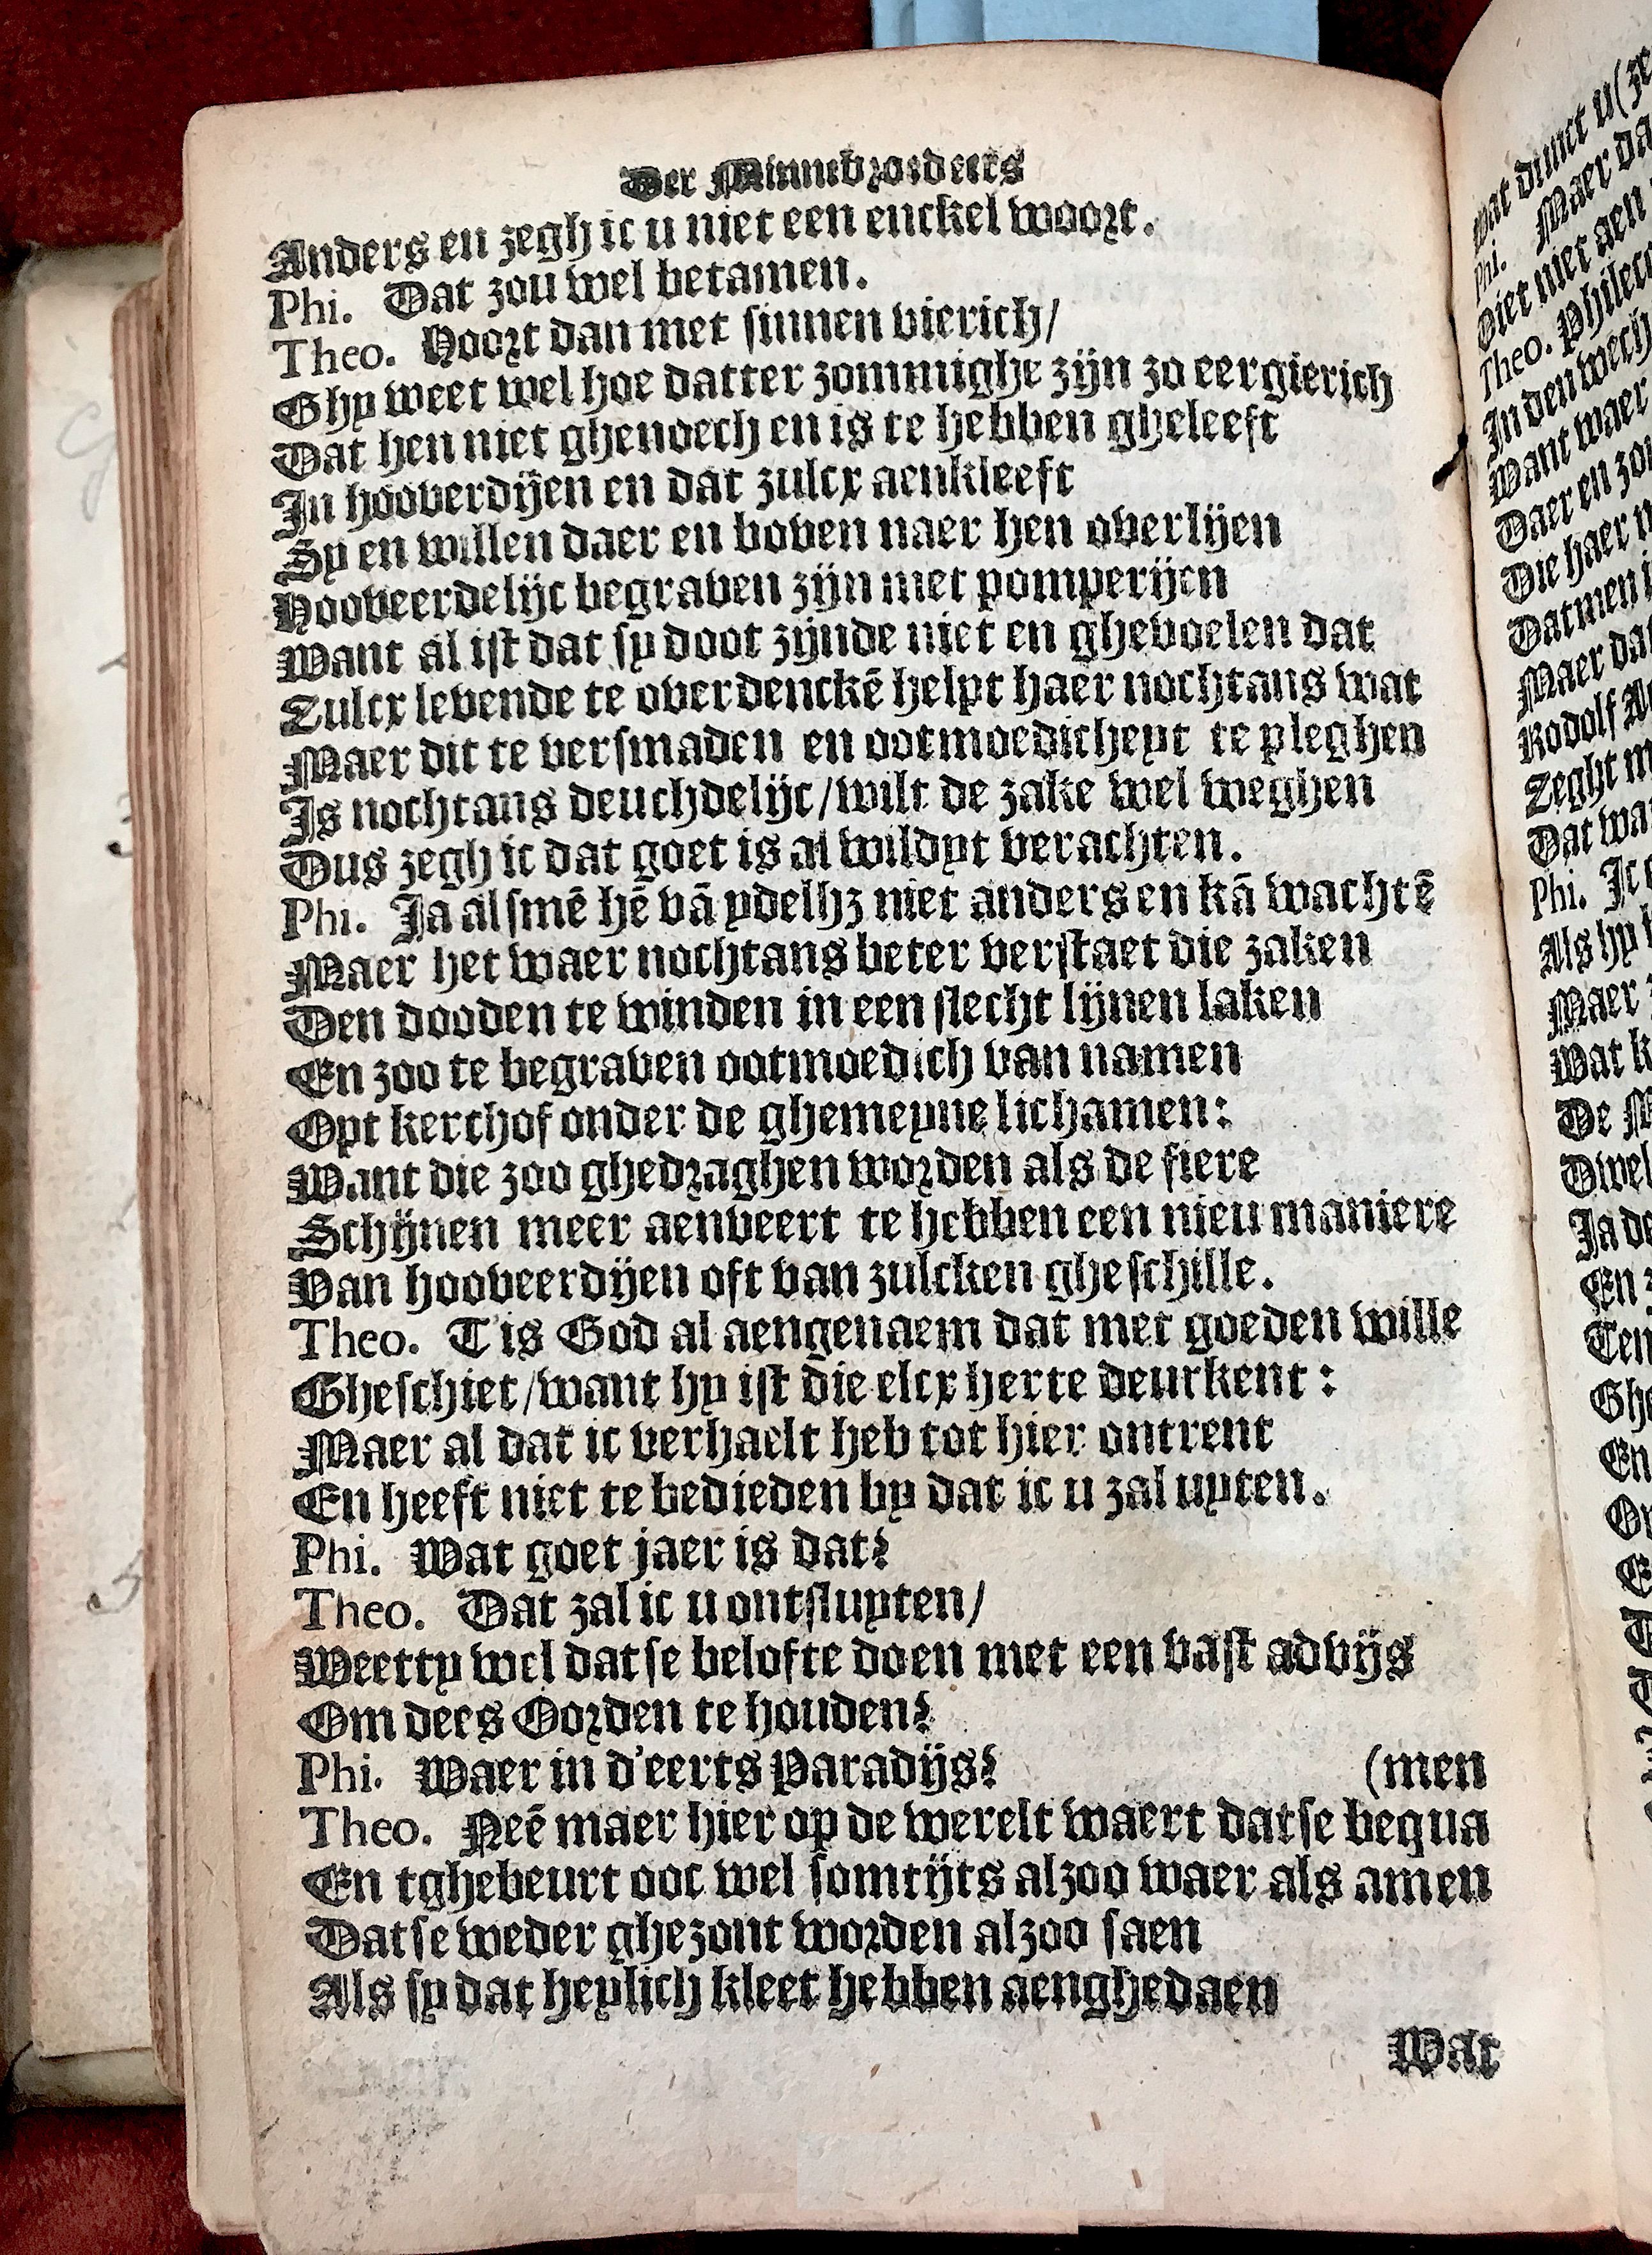 Der Minnebroeders
Anders en zegh ic u niet een enckel woort.
Phi. Dat zou wel betamen.
Theo. Hoort dan met sinnen vierich/
Ghy weet wel hoe datter zommighe zijn zo eergierich
Dat hen niet ghenoech en is te hebben gheleeft
In hooverdijen en dat zulcx aenkleeft
Sy en willen daer en boven naer hen overlijen
Hooveerdelijc begraven zijn met pomperijen
Want al ist dat sy doot zijnde niet en ghevoelen dat
Zulcx levende te overdenckē helpt haer nochtans wat
Maer dit te versmaden en ootmoedicheyt te pleghen
Is nochtans deuchdelijc/wilt de zake wel weghen
Dus zegh ic dat goet is al wildyt verachten.
Phi. Ja alsmē hē vā ydelhz niet anders en kā wachtē
Maer het waer nochtans beter verstaet die zaken
Den dooden te winden in een slecht lijnen laken
En zoo te begraven ootmoedich van namen
Opt kerchof onder de ghemeyne lichamen:
Want die zoo ghedraghen worden als de fiere
Schijnen meer aenveert te hebben een nieu maniere
Van hooveerdijen oft van zulcken gheschille.
Theo. T'is God al aengenaem dat met goeden wille
Gheschiet/want hy ist die elcx herte deurkent:
Maer al dat ic verhaelt heb tot hier ontrent
En heeft niet te bedieden by dat ic u zal uyten.
Phi. Wat goet jaer is dat?
Theo. Dat zal ic u ontsluyten/
Weetty wel datse belofte doen met een vast advijs
Om dees Oorden te houden?
Phi. Waer in d'eerts Paradijs? (men
Theo. Neē maer hier op de werelt waert datse bequa
En tghebeurt ooc wel somtijts alzoo waer als amen
Datse weder ghezont worden alzoo saen
Als sy dat heylich kleet hebben aenghedaen
Wat